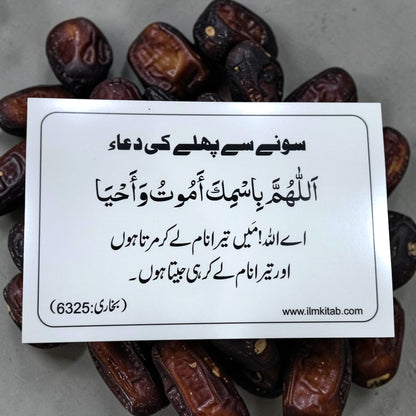 سونے سے پھلے کی دعاء
اَللّٰهُمَّ بِاسْمِكَ أَمُوتُ وَأَحْيَا
اے اللہ! مَیں تیرا نام لے کر مرتا ہوں
اور تیرا نام لے کر ہی جیتا ہوں۔
(بخاری:6325)
www.ilmkitab.com